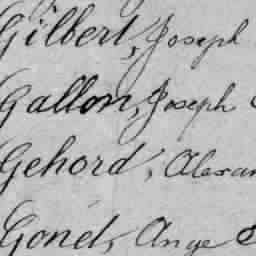 Gilbert, Joseph
Gallon, Joseph
Gehord, Alexan
Gonet, Ange